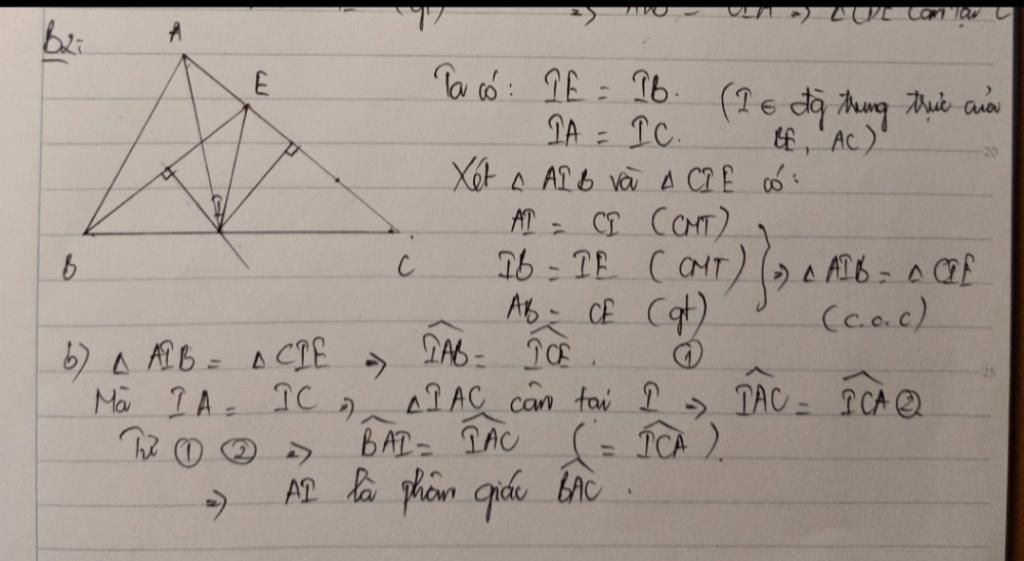 (gt) => => △CDE cân tại C
B2:
A
E
I
B
C
Ta có: IE = IB. (I ∈ đg trung trực của
IA = IC. BE, AC)
20
Xét △ AIB và △ CIE có:
AI = CI (CMT)
IB = IE (CMT) } => △ AIB = △ CIE
AB = CE (gt) (c.c.c)
b) △ AIB = △ CIE => \widehat{IAB} = \widehat{ICE}. ①
25
Mà IA = IC => △IAC cân tại I => \widehat{IAC} = \widehat{ICA} ②
Từ ① ② => \widehat{BAI} = \widehat{IAC} (= \widehat{ICA}).
=> AI là phân giác \widehat{BAC}.